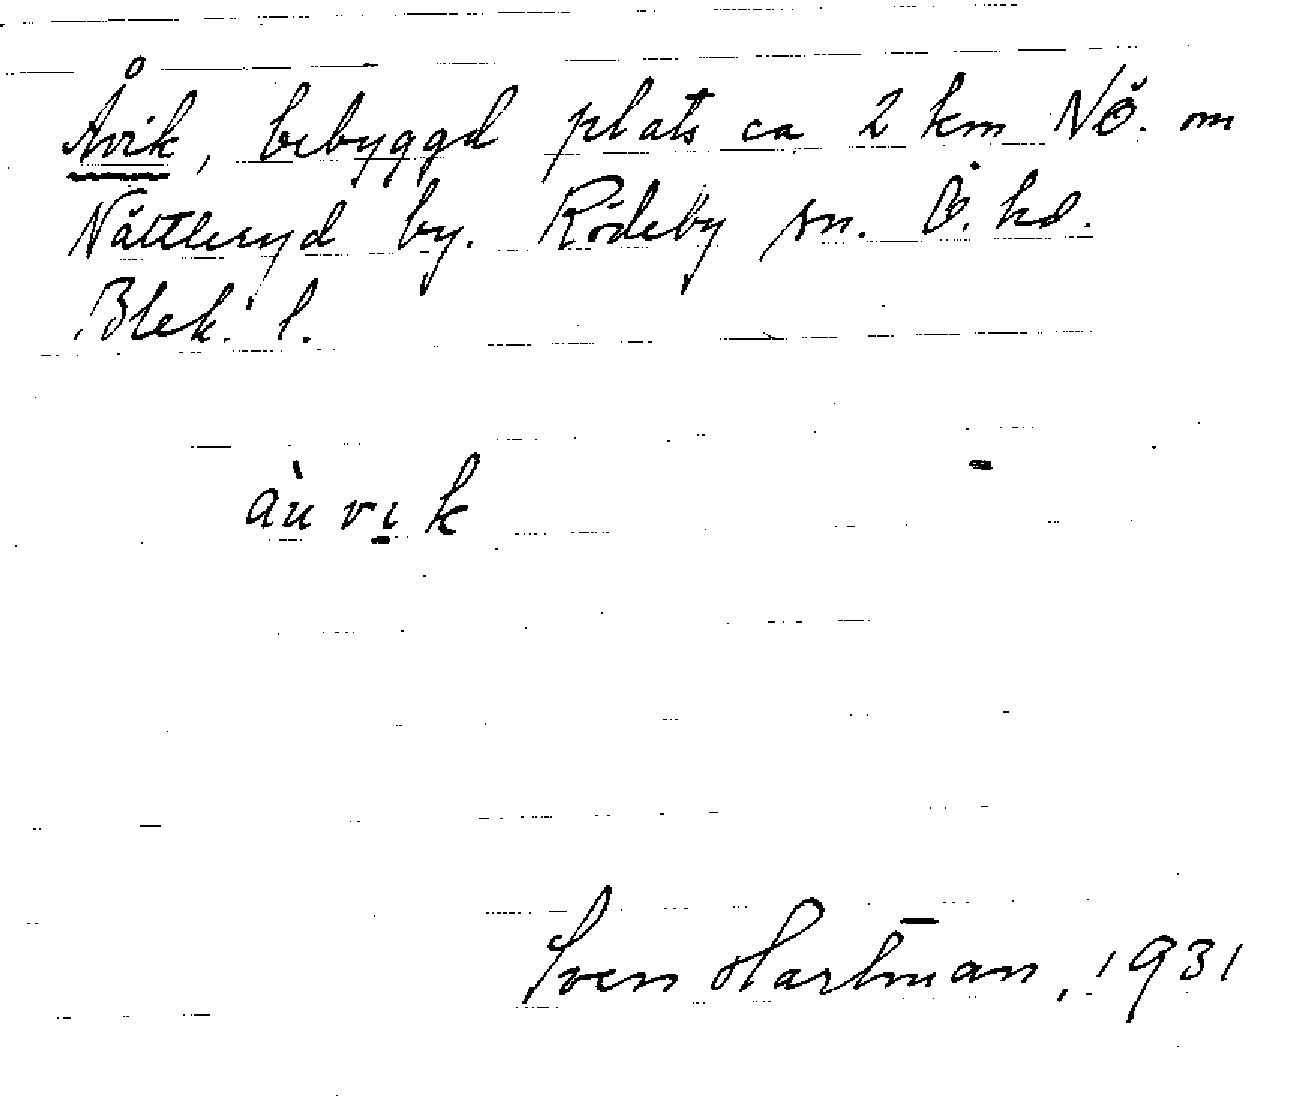 Åvik, bebyggd plats ca 2 km NÖ. om
Nättleryd by. Rödeby sn. Ö. hd.
Blek. l.
àu vı̱ k
Sven Hartman, 1931